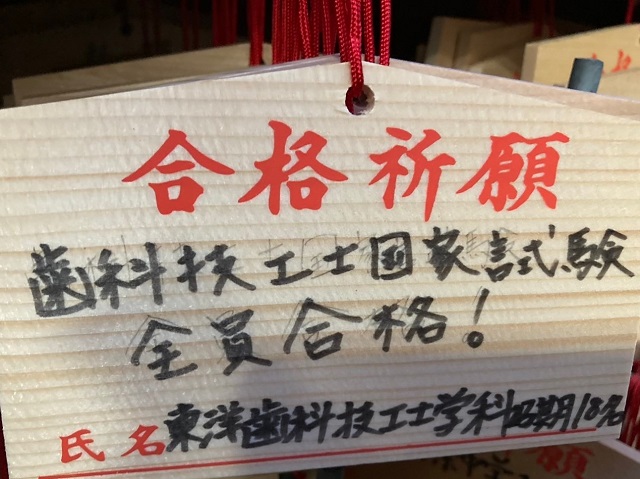 合格祈願
歯科技工士国家試験
全員合格!
氏名 東洋歯科技工士学科 期 18名